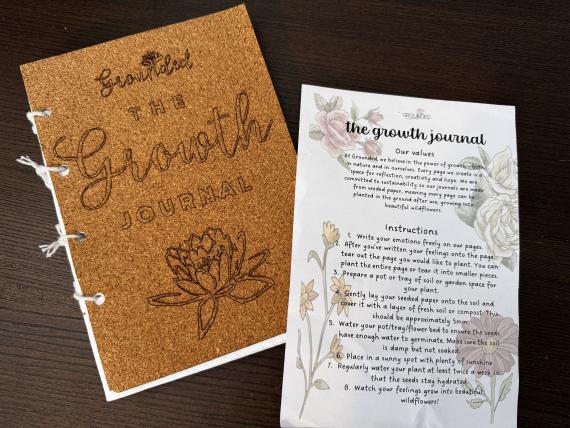 Grounded
THE
Growth
JOURNAL
GROUNDED
the growth journal
Our values
At Grounded, we believe in the power of growth - both
in nature and in ourselves. Every page we create is a
space for reflection, creativity and hope. We are
committed to sustainability so our journals are made
from seeded paper, meaning every page can be
planted in the ground after use, growing into
beautiful wildflowers.
Instructions
1. Write your emotions freely on our pages.
2. After you've written your feelings onto the page,
tear out the page you would like to plant. You can
plant the entire page or tear it into smaller pieces.
3. Prepare a pot or tray of soil or garden space for
your plant.
4. Gently lay your seeded paper onto the soil and
cover it with a layer of fresh soil or compost. This
should be approximately 5mm.
5. Water your pot/tray/flower bed to ensure the seeds
have enough water to germinate. Make sure the soil
is damp but not soaked.
6. Place in a sunny spot with plenty of sunshine
7. Regularly water your plant at least twice a week so
that the seeds stay hydrated.
8. Watch your feelings grow into beautiful
wildflowers!